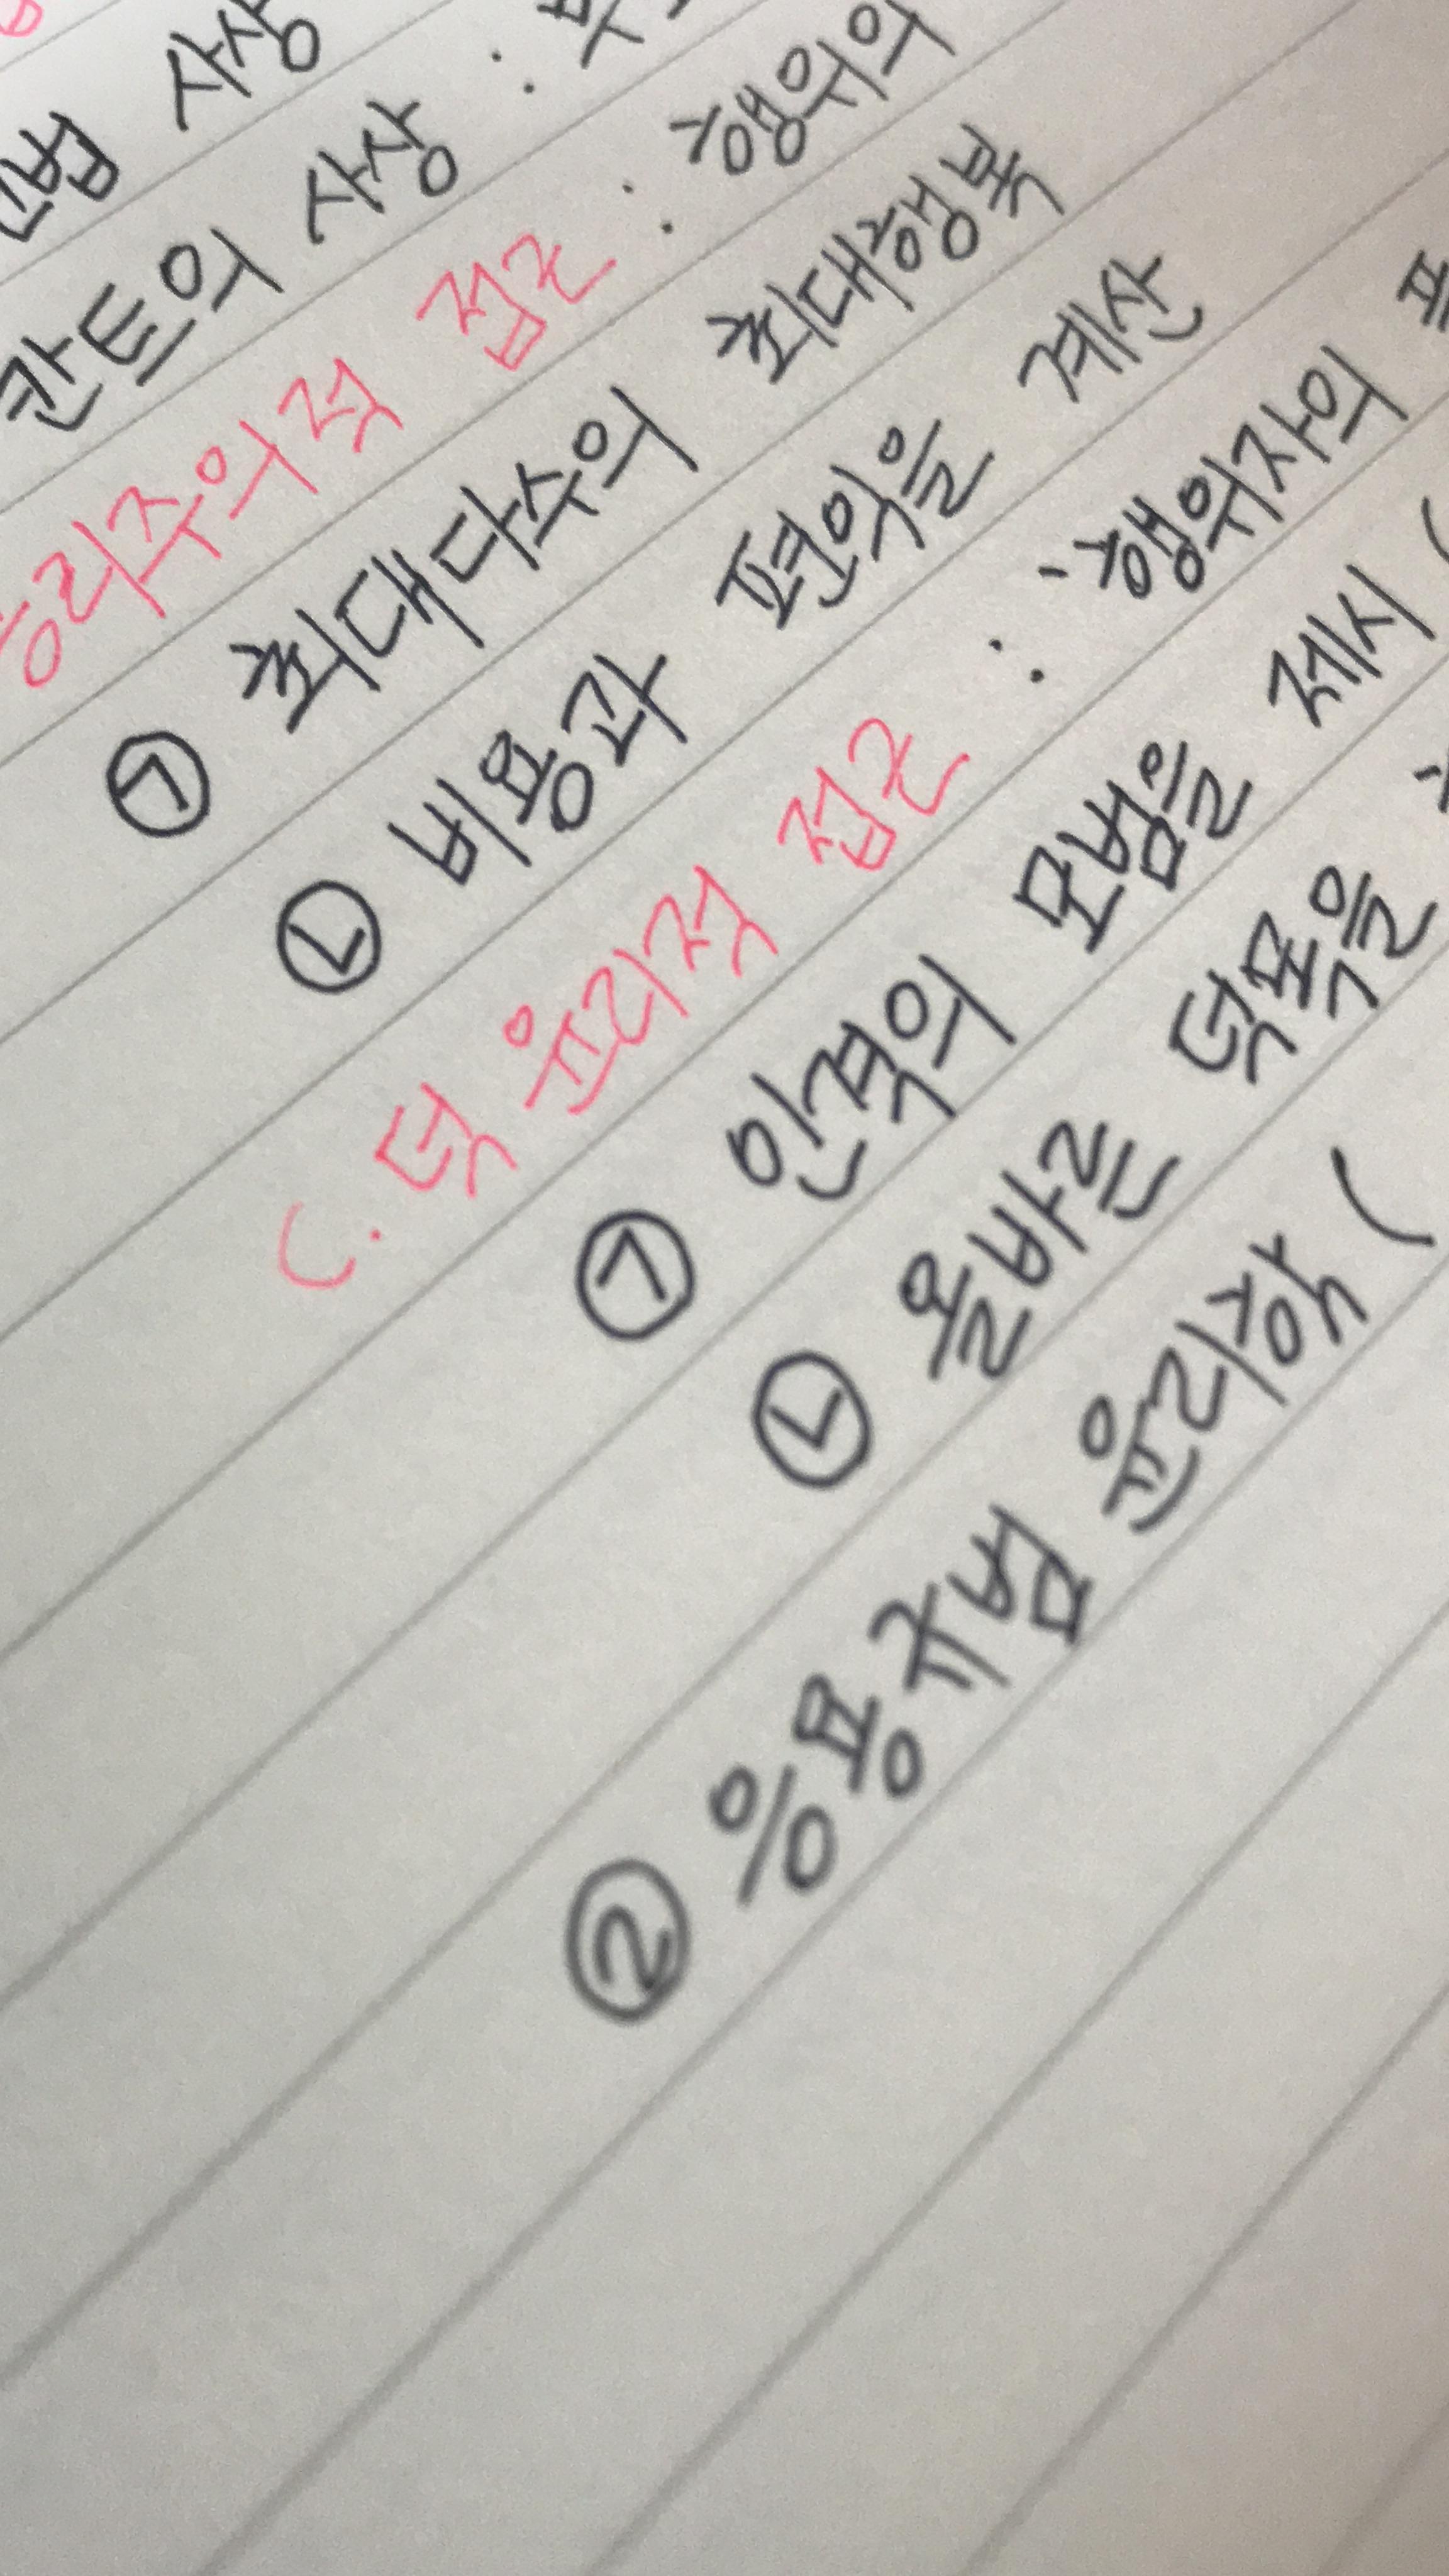 사상
칸트의 사상 :
공리주의적 접근 : 행위의
㉠ 최대다수의 최대행복
㉡ 비용과 편익을 계산
C. 덕 윤리적 접근 : 행위자의
㉠ 인격의 모범을 제시 (
㉡ 올바른 덕목을
② 응용규범 윤리학 (